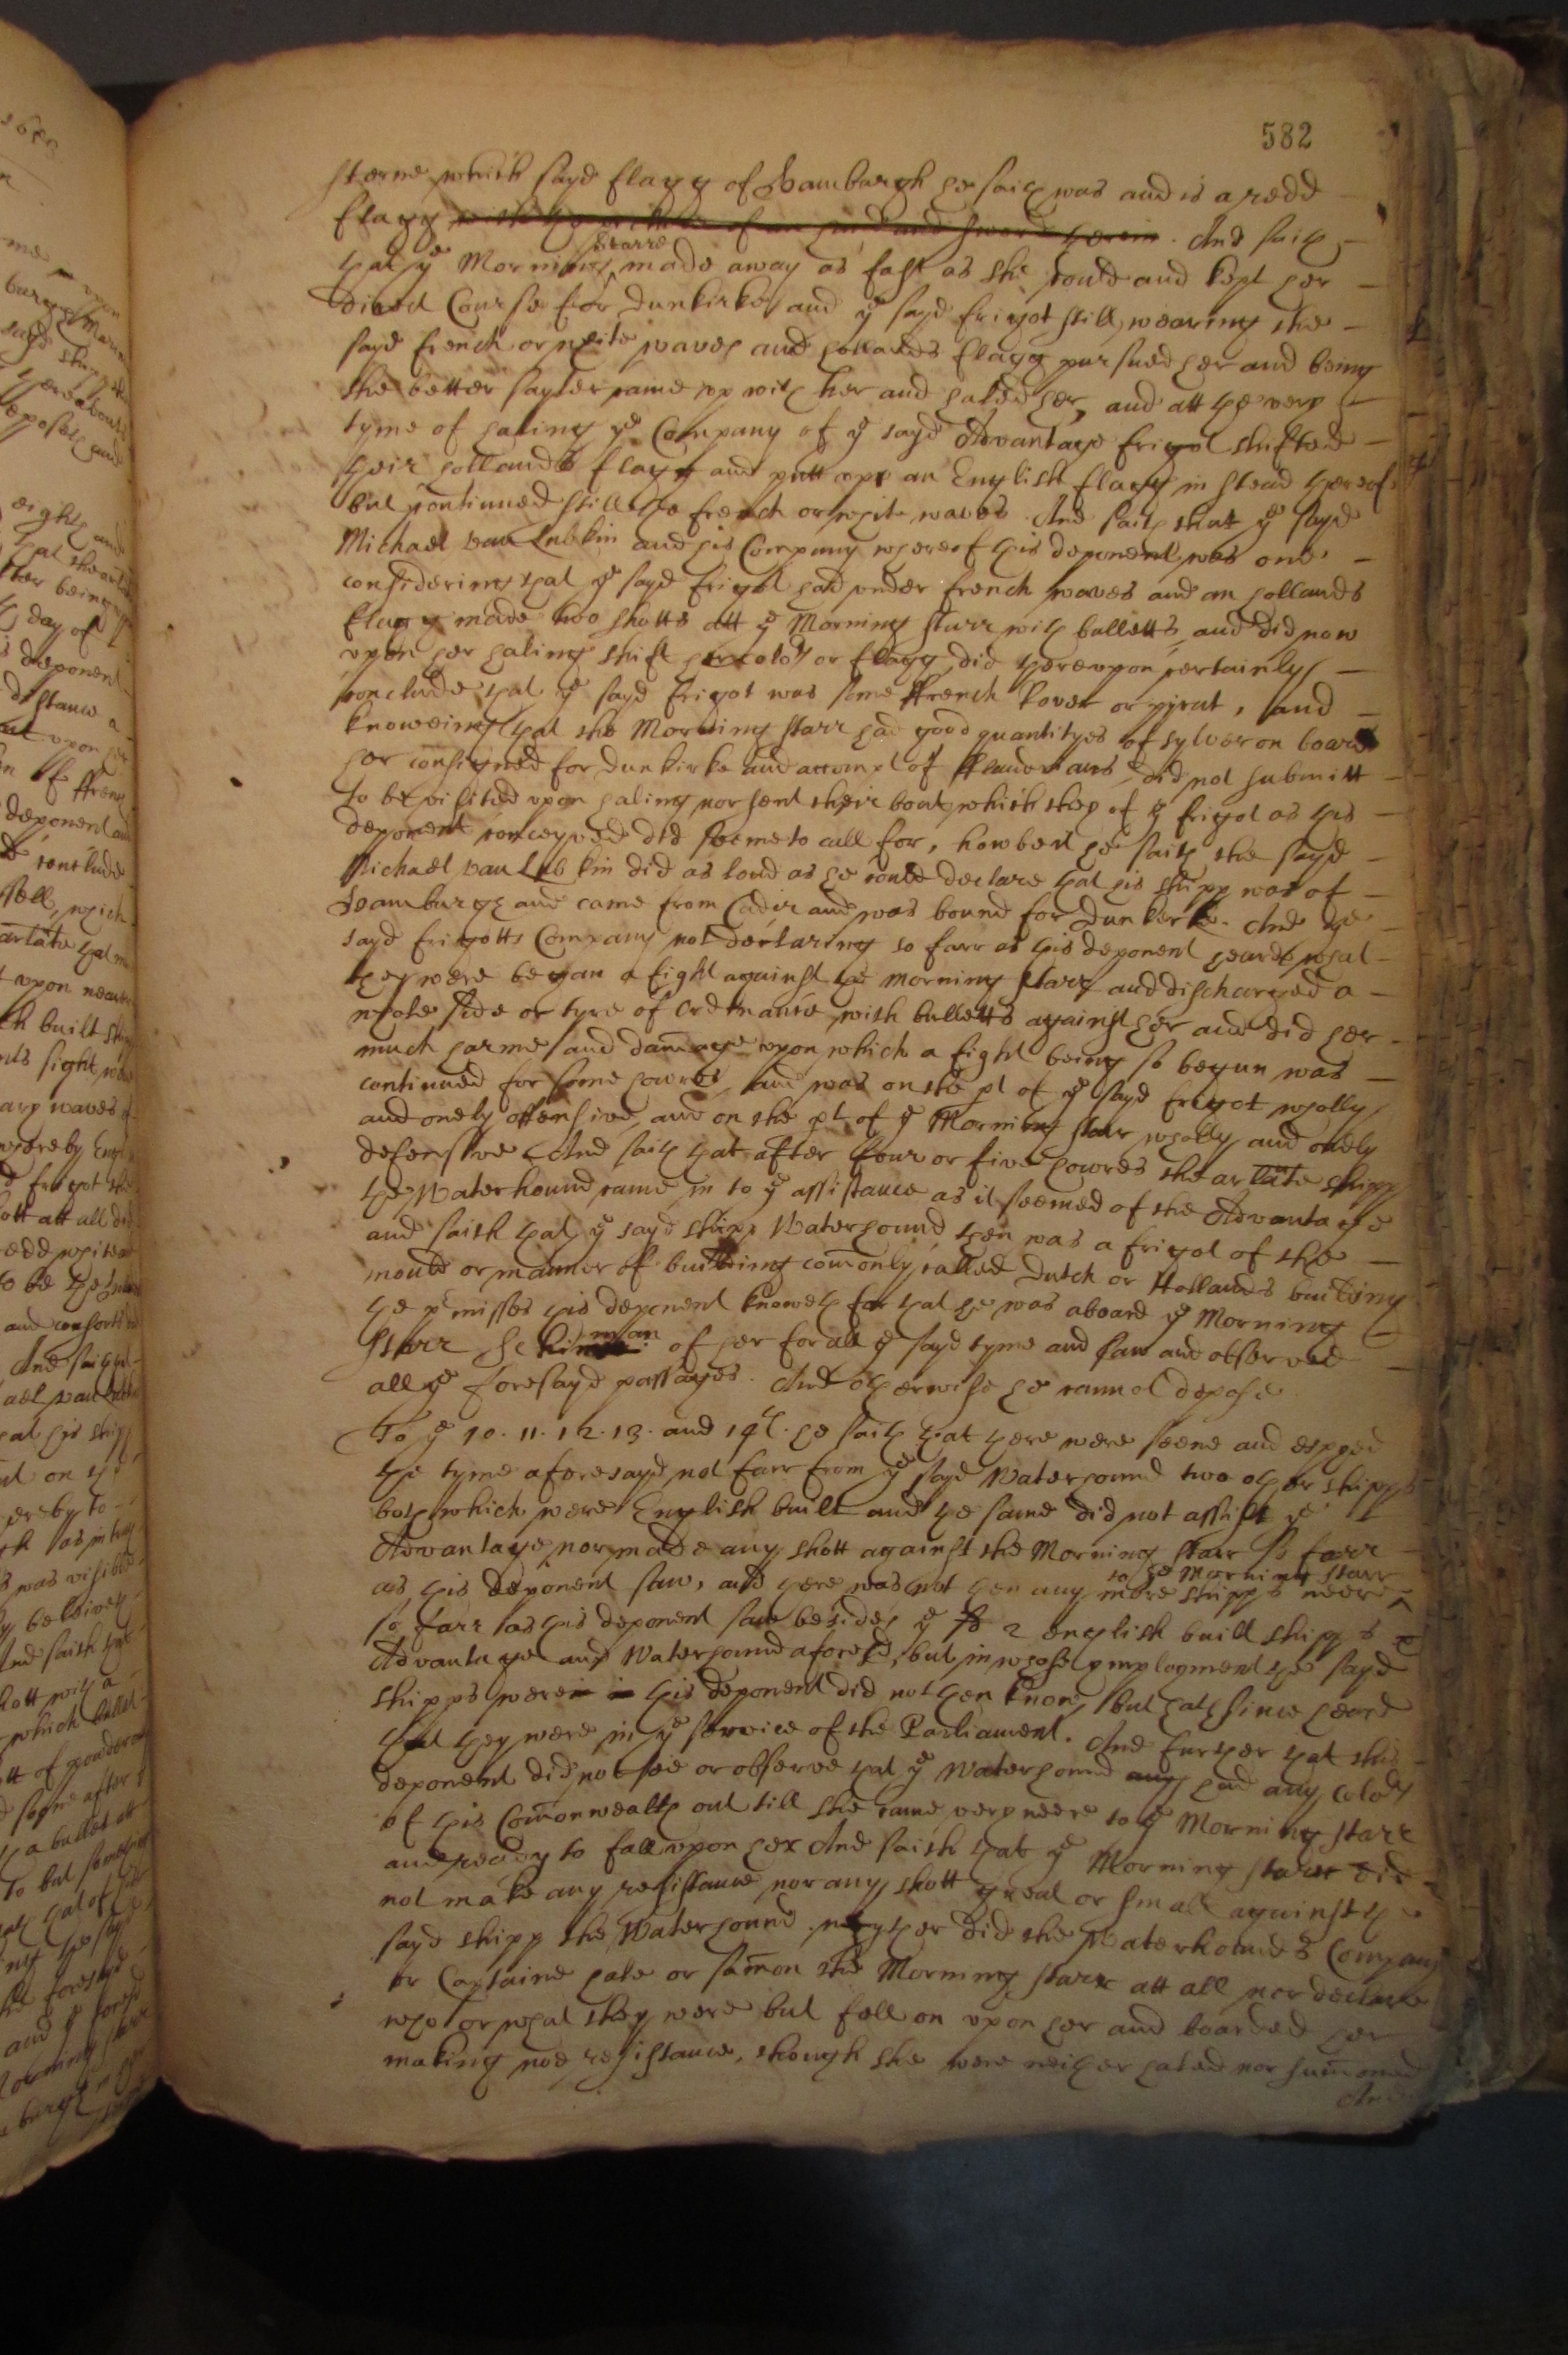 582
sterne which sayd flagg of Hamburgh he saith was and is a redd
flagg with the picture of an hand and sword therein. And saith
that ye Morning starre made away as fast as she could and kept her
direct Course for Dunkirke, and ye sayd frigot still wearing the
sayd french or white waves and hollands flagg pursued her and being
the better sayler came up with her and haled her, and att the very
tyme of haling ye Company of ye sayd Advantage frigot shifted
their hollands flagg and putt upp an English flagg in stead thereof
but continued still the french or white waves. And saith that ye sayd
Michael van Lubkin and his Company whereof this deponent was one
considering that ye sayd frigot had under french waves and an hollands
flagg made two shotts att ye Morning starr with bulletts, and did now
upon her haling shift her colors or flagg, did thereupon certainly
conclude that ye sayd frigot was some ffrench Rover or pirat, and
knoweing that the Morning starr had good quantityes of sylver on board
her consigned for Dunkirke and accompt of fflandrians, did not submitt
to be visited upon haling nor sent their boat which they of ye frigot as this
deponent conceyved did seeme to call for, howbeit he saith the sayd
Michael van Lubkin did as loud as he could declare that his shipp was of
Hamburgh and came from Cadiz and was bound for Dunkerke. And the
sayd frigotts Company not declaring so farr as this deponent heard what
they were began a fight against the morning starr and discharged a
whole side or tyre of Ordnance with bulletts against her and did her
much harme and dammage upon which a fight being so begun was
continued for some howres, and was on the pt of ye sayd frigot wholly
and onely offensive, and on the pt of ye Morning starr wholly and onely
defensive. And saith that after ffour or five howres the arlate shipp
the Waterhound came in to ye assistance as it seemed of the Advantage
and saith that ye sayd shipp Waterhound then was a frigot of the
mould or manner of building comonly called Dutch or Hollands building
the pmisses this deponent knoweth for that he was aboard ye Morning
Starr Schimman of her for all ye sayd tyme and saw and observed
all ye foresayd passages. And otherwise he cannot depose.
To ye 10. 11. 12. 13. and 14th. he saith that there were seene and espyed
the tyme aforesayd not farr from ye sayd Waterhound two other shipps
both which were English built and the same did not assist ye
Advantage nor made any shott against the Morning starr so farr
as this deponent saw, and there was not then any more shipps neere
to ye Morning starr
so farr as this deponent saw besides ye sd 2 english built shipps ye
Advantage and Waterhound aforesd, but in whose employment the sayd
shipps were in this deponent did not then know, but hath since heard
that they were in ye service of the Parliament. And further that this
deponent did not see or observe that ye Waterhound any had any colors
of this Comonwealth out till she came very neere to ye Morning starr
and ready to fall upon her And saith that ye Morning starr did
not make any resistance nor any shott great or small against the
sayd shipp the Waterhound, neyther did the Waterhounds Company
or Captaine hale or samon the Morning starr att all nor declare
who or what they were but fell on upon her and boarded her
making noe resistance, though she were neither haled nor summoned
And